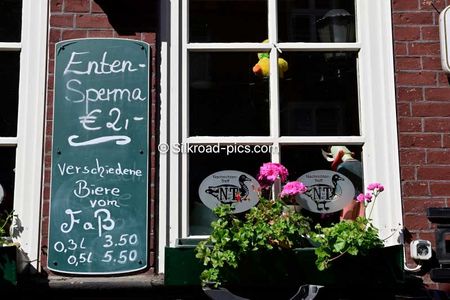 Enten-
Sperma
€ 2,-
verschiedene
Biere
vom
Faß
0,3l 3.50
0,5l 5.50
© Silkroad-pics.com
Nachrichten-
Treff
NT
Nachrichten-
Treff
NT